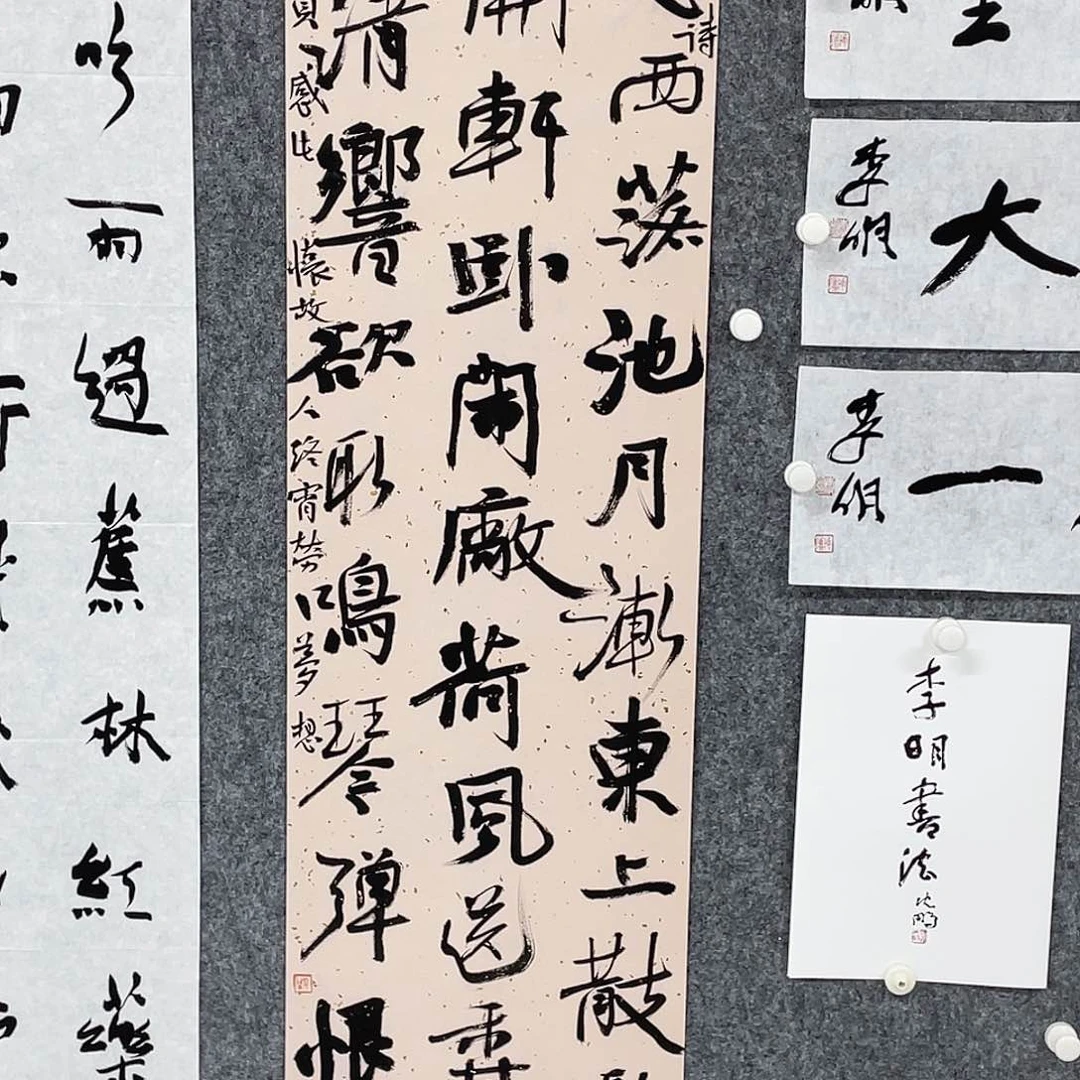 大
李明
一
李明
李明書法
沈鵬
詩
西落池月漸東上散
開軒卧閑廠荷風送香
清響欲取鳴琴彈恨
賞感此懷故人終宵勞夢想
吟雨過蕉林紅藥